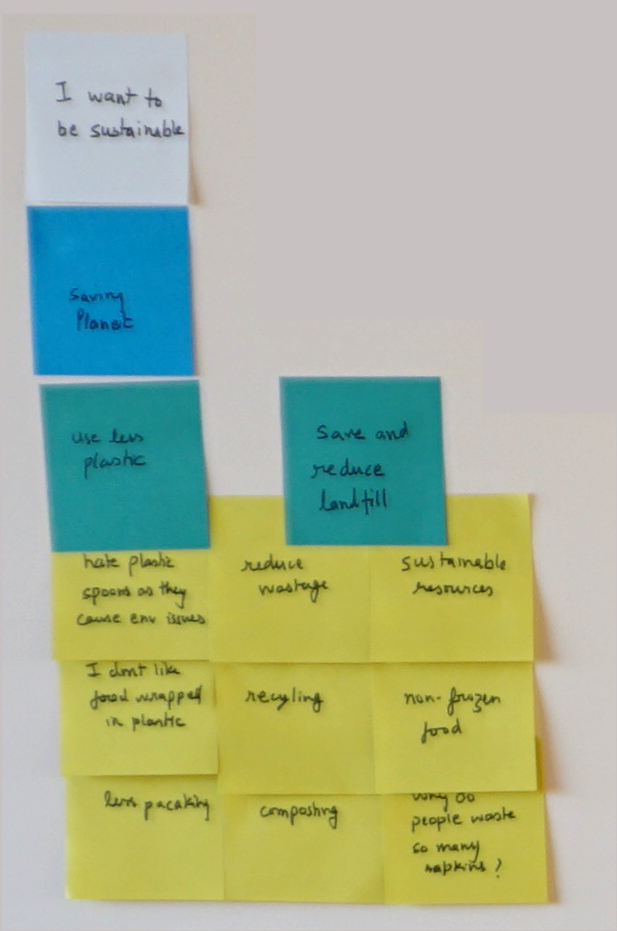 I want to
be sustainable
Saving
Planet
use less
plastic
Save and
reduce
landfill
hate plastic
spoons as they
cause env issues
reduce
wastage
sustainable
resources
I dont like
food wrapped
in plastic
recyling
non-frozen
food
less pacaking
composting
why do
people waste
so many
napkins?